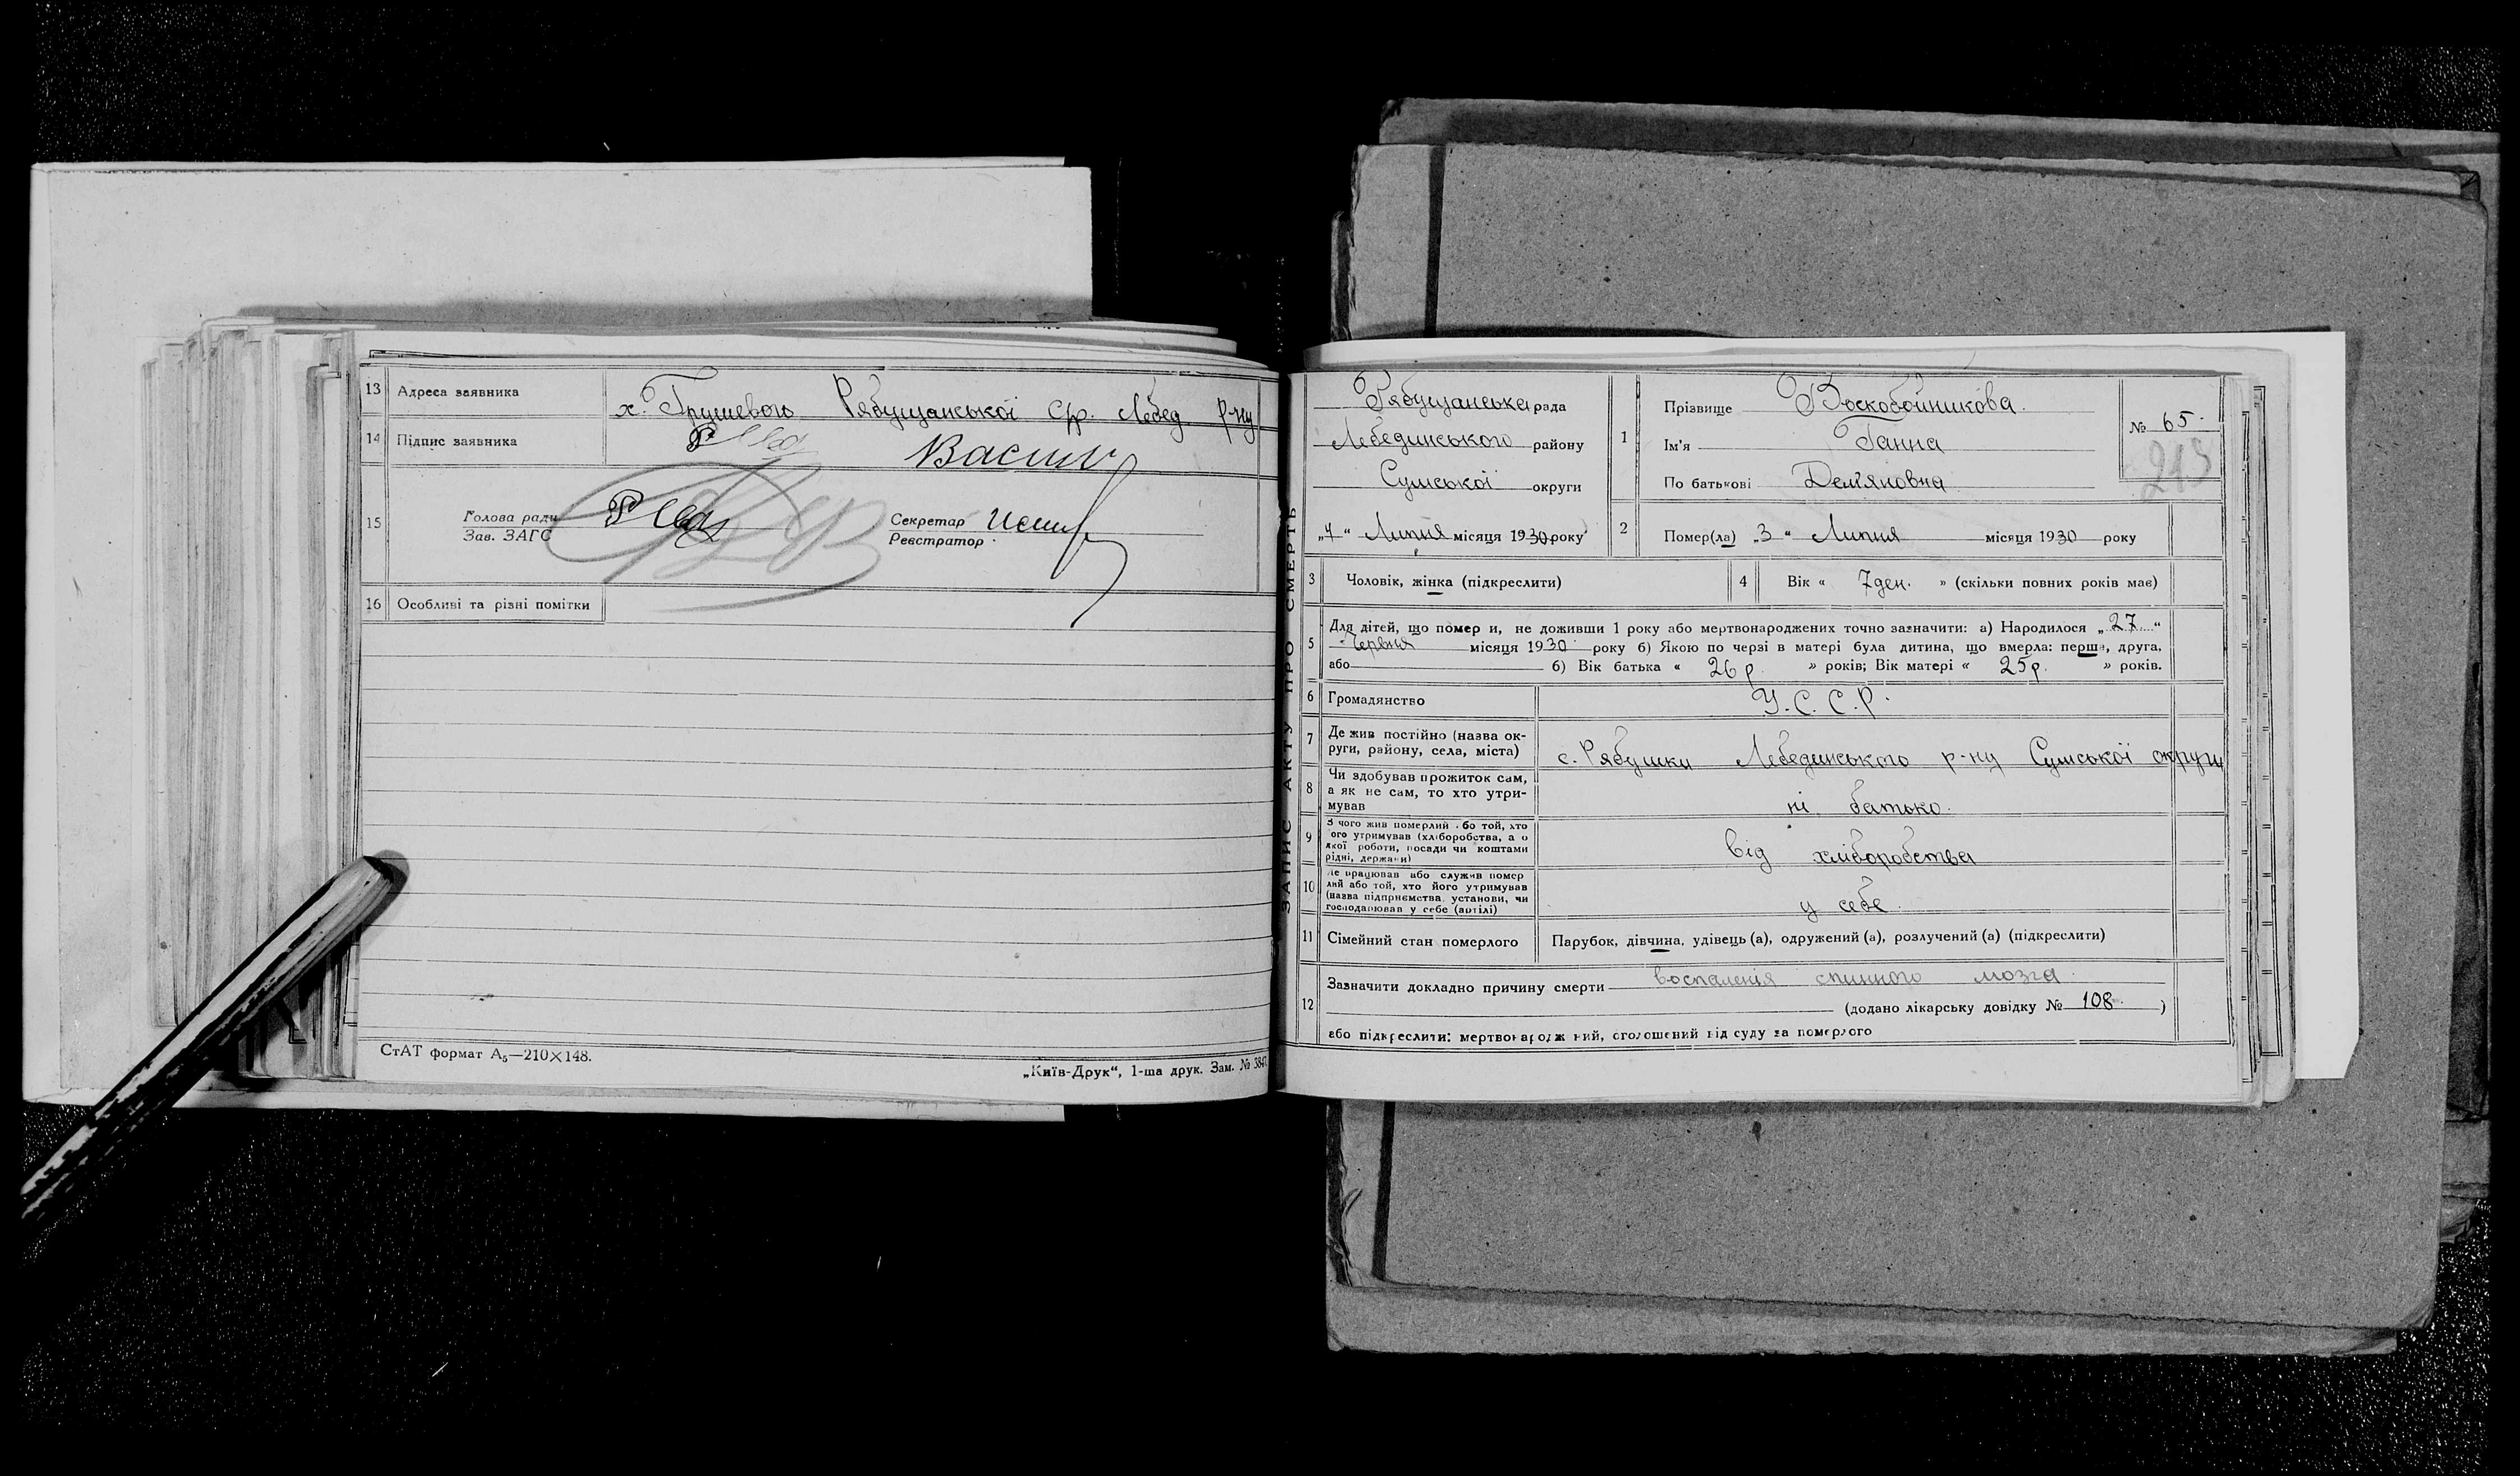 13 Адреса заявника х. Грушевого Рябущанської с/р. Лебед р-ну
14 Підпис заявника Васил
15 Голова ради
Зав. ЗАГС
Секретар
Реєстратор
16 Особливі та різні помітки
СтАТ формат А₅—210×148.
„Київ-Друк“, 1-ша друк. Зам. № 384
ЗАПИС АКТУ ПРО СМЕРТЬ
Рябущанська рада
Лебединського району
Сумської округи
„7“ Липня місяця 1930 року
1 Прізвище Воскобойникова
Ім'я Ганна
По батькові Дем'яновна
№ 65
213
2 Помер(ла) „3“ Липня місяця 1930 року
3 Чоловік, жінка (підкреслити)
4 Вік « 7 ден. » (скільки повних років має)
5 Для дітей, що померли, не доживши 1 року або мертвонароджених точно зазначити: а) Народилося „27“
Червня місяця 1930 року б) Якою по черзі в матері була дитина, що вмерла: перша, друга,
або б) Вік батька « 26 р. » років; Вік матері « 25 р. » років.
6 Громадянство У.С.С.Р.
7 Де жив постійно (назва ок-
руги, району, села, міста) с. Рябушки Лебединського р-ну Сумської округи
8 Чи здобував прожиток сам,
а як не сам, то хто утри-
мував ні батько.
9 З чого жив померлий або той, хто
його утримував (хліборобства, а о
якої роботи, посади чи коштами
рідні, держави) від хліборобства
10 Де працював або служив помер
лий або той, хто його утримував
(назва підприємства, установи, чи
господарював у себе (артілі) у себе
11 Сімейний стан померлого Парубок, дівчина, удівець (а), одружений (а), розлучений (а) (підкреслити)
12 Зазначити докладно причину смерти воспаленія спинного мозга
(додано лікарську довідку № 108 )
або підкреслити: мертвонароджений, оголошений від суду за померлого